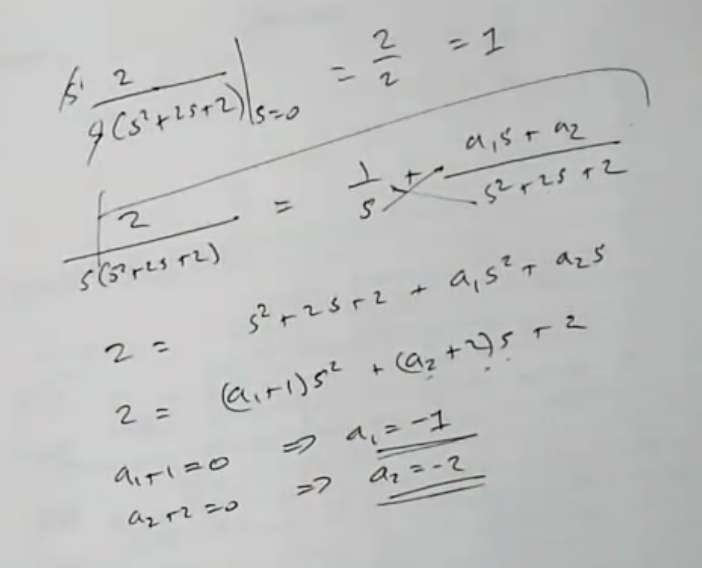 s · 2 / s(s² + 2s + 2) |s=0 = 2/2 = 1
2 / s(s² + 2s + 2) = 1/s + (a₁s + a₂) / (s² + 2s + 2)
2 = s² + 2s + 2 + a₁s² + a₂s
2 = (a₁+1)s² + (a₂+2)s + 2
a₁+1=0 ⇒ a₁=-1
a₂+2=0 ⇒ a₂=-2